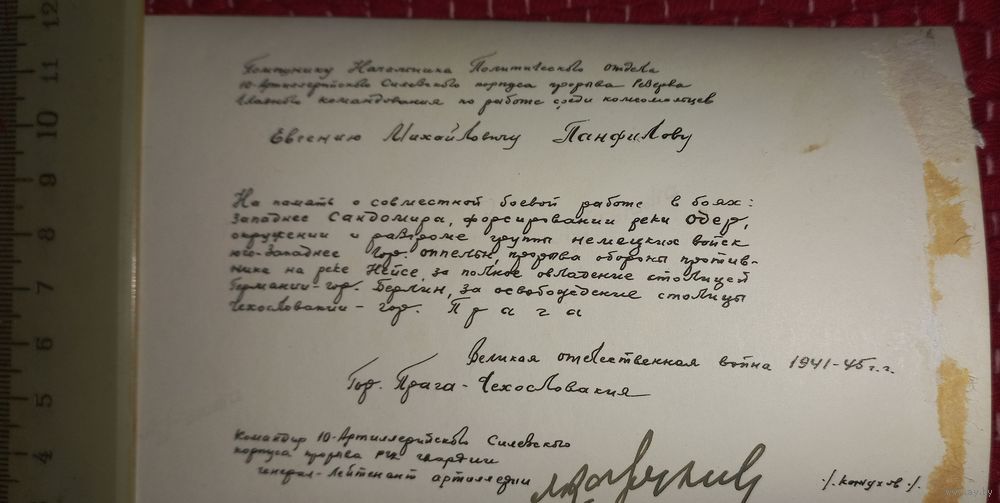 Помощнику Начальника Политического отдела
10-Артиллерийского Силезского корпуса прорыва Резерва
Главного командования по работе среди комсомольцев
Евгению Михайловичу Панфилову
На память о совместной боевой работе в боях:
Западнее Сандомира, форсировании реки Одер,
окружении и разгроме группы немецких войск
юго-западнее гор. Оппельн, прорыва обороны против-
ника на реке Нейсе, за полное овладение столицей
Германии - гор. Берлин, за освобождение столицы
Чехословакии - гор. Прага
Великая отечественная война 1941-45 г.г.
Гор. Прага - Чехословакия
Командир 10-Артиллерийского Силезского
корпуса прорыва РГК гвардии
генерал-лейтенант артиллерии
/. Кожухов ./.
12
11
10
9
8
7
6
5
4